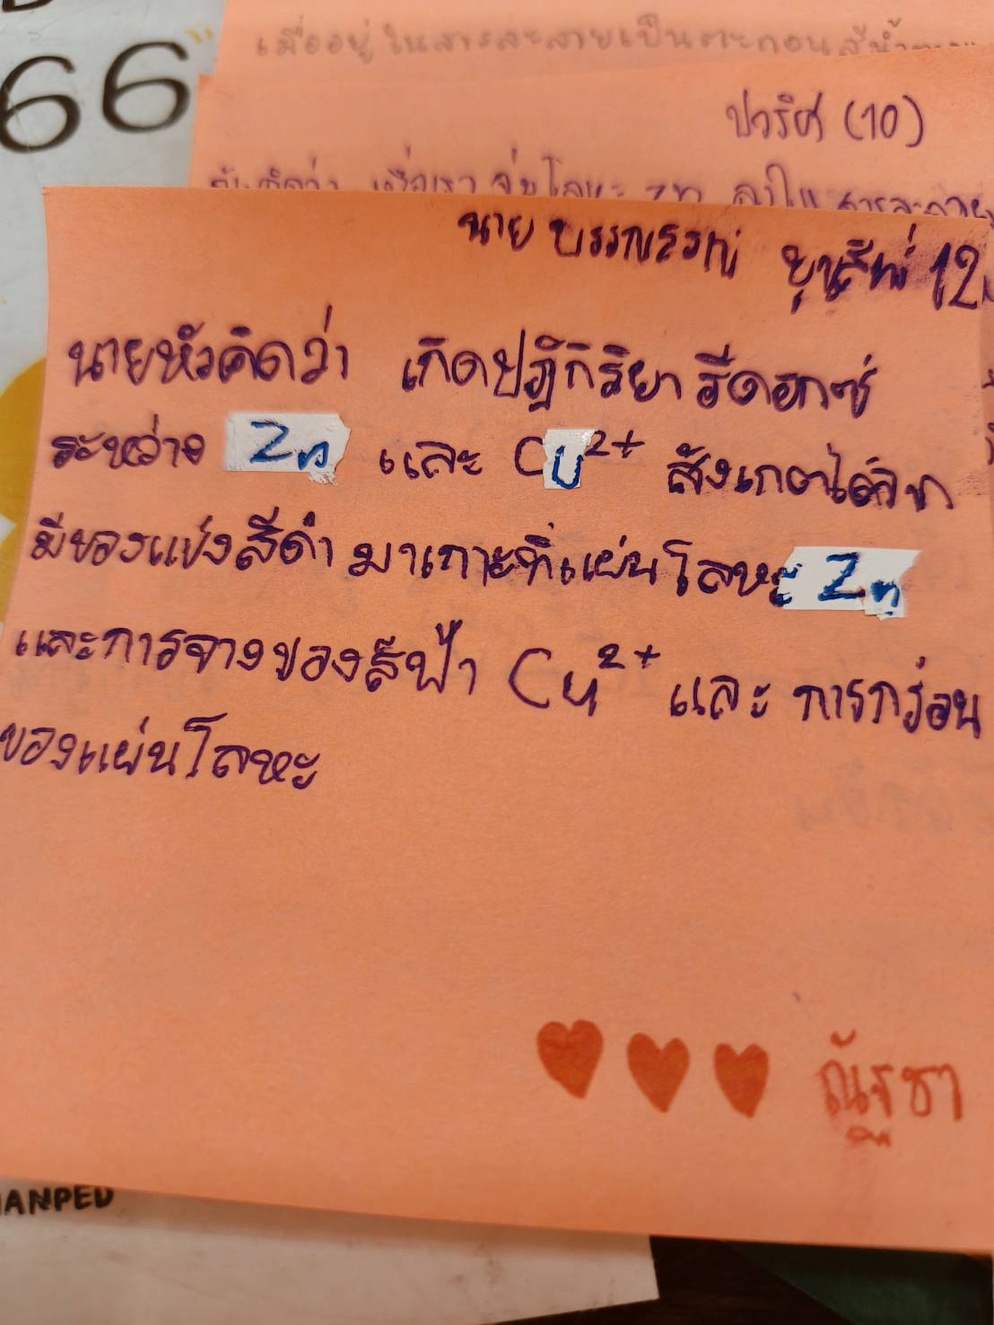 66"
เมื่ออยู่ในสารละลายเป็นตะกอนสีน้ำตาล
ปวริศ (10)
ฉันคิดว่า เมื่อเรา จุ่มโลหะ Zn ลงใน สารละลาย
นาย บรรณสรณ์ 12
นายหัวคิดว่า เกิดปฏิกิริยา รีดอกซ์
ระหว่าง Zn และ CU²⁺ สังเกตได้จาก
มีของแข็งสีดำ มาเกาะที่แผ่นโลหะ Zn
และการจางของสีฟ้า Cu²⁺ และ การกร่อน
ของแผ่นโลหะ
♥♥♥ ณัฐชา